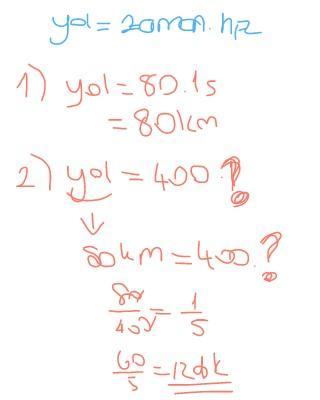 yol = zaman.hız
1) yol = 80.1s
= 80km
2) yol = 400.?
↓
80km = 400.?
80/400 = 1/5
60/5 = 12dk